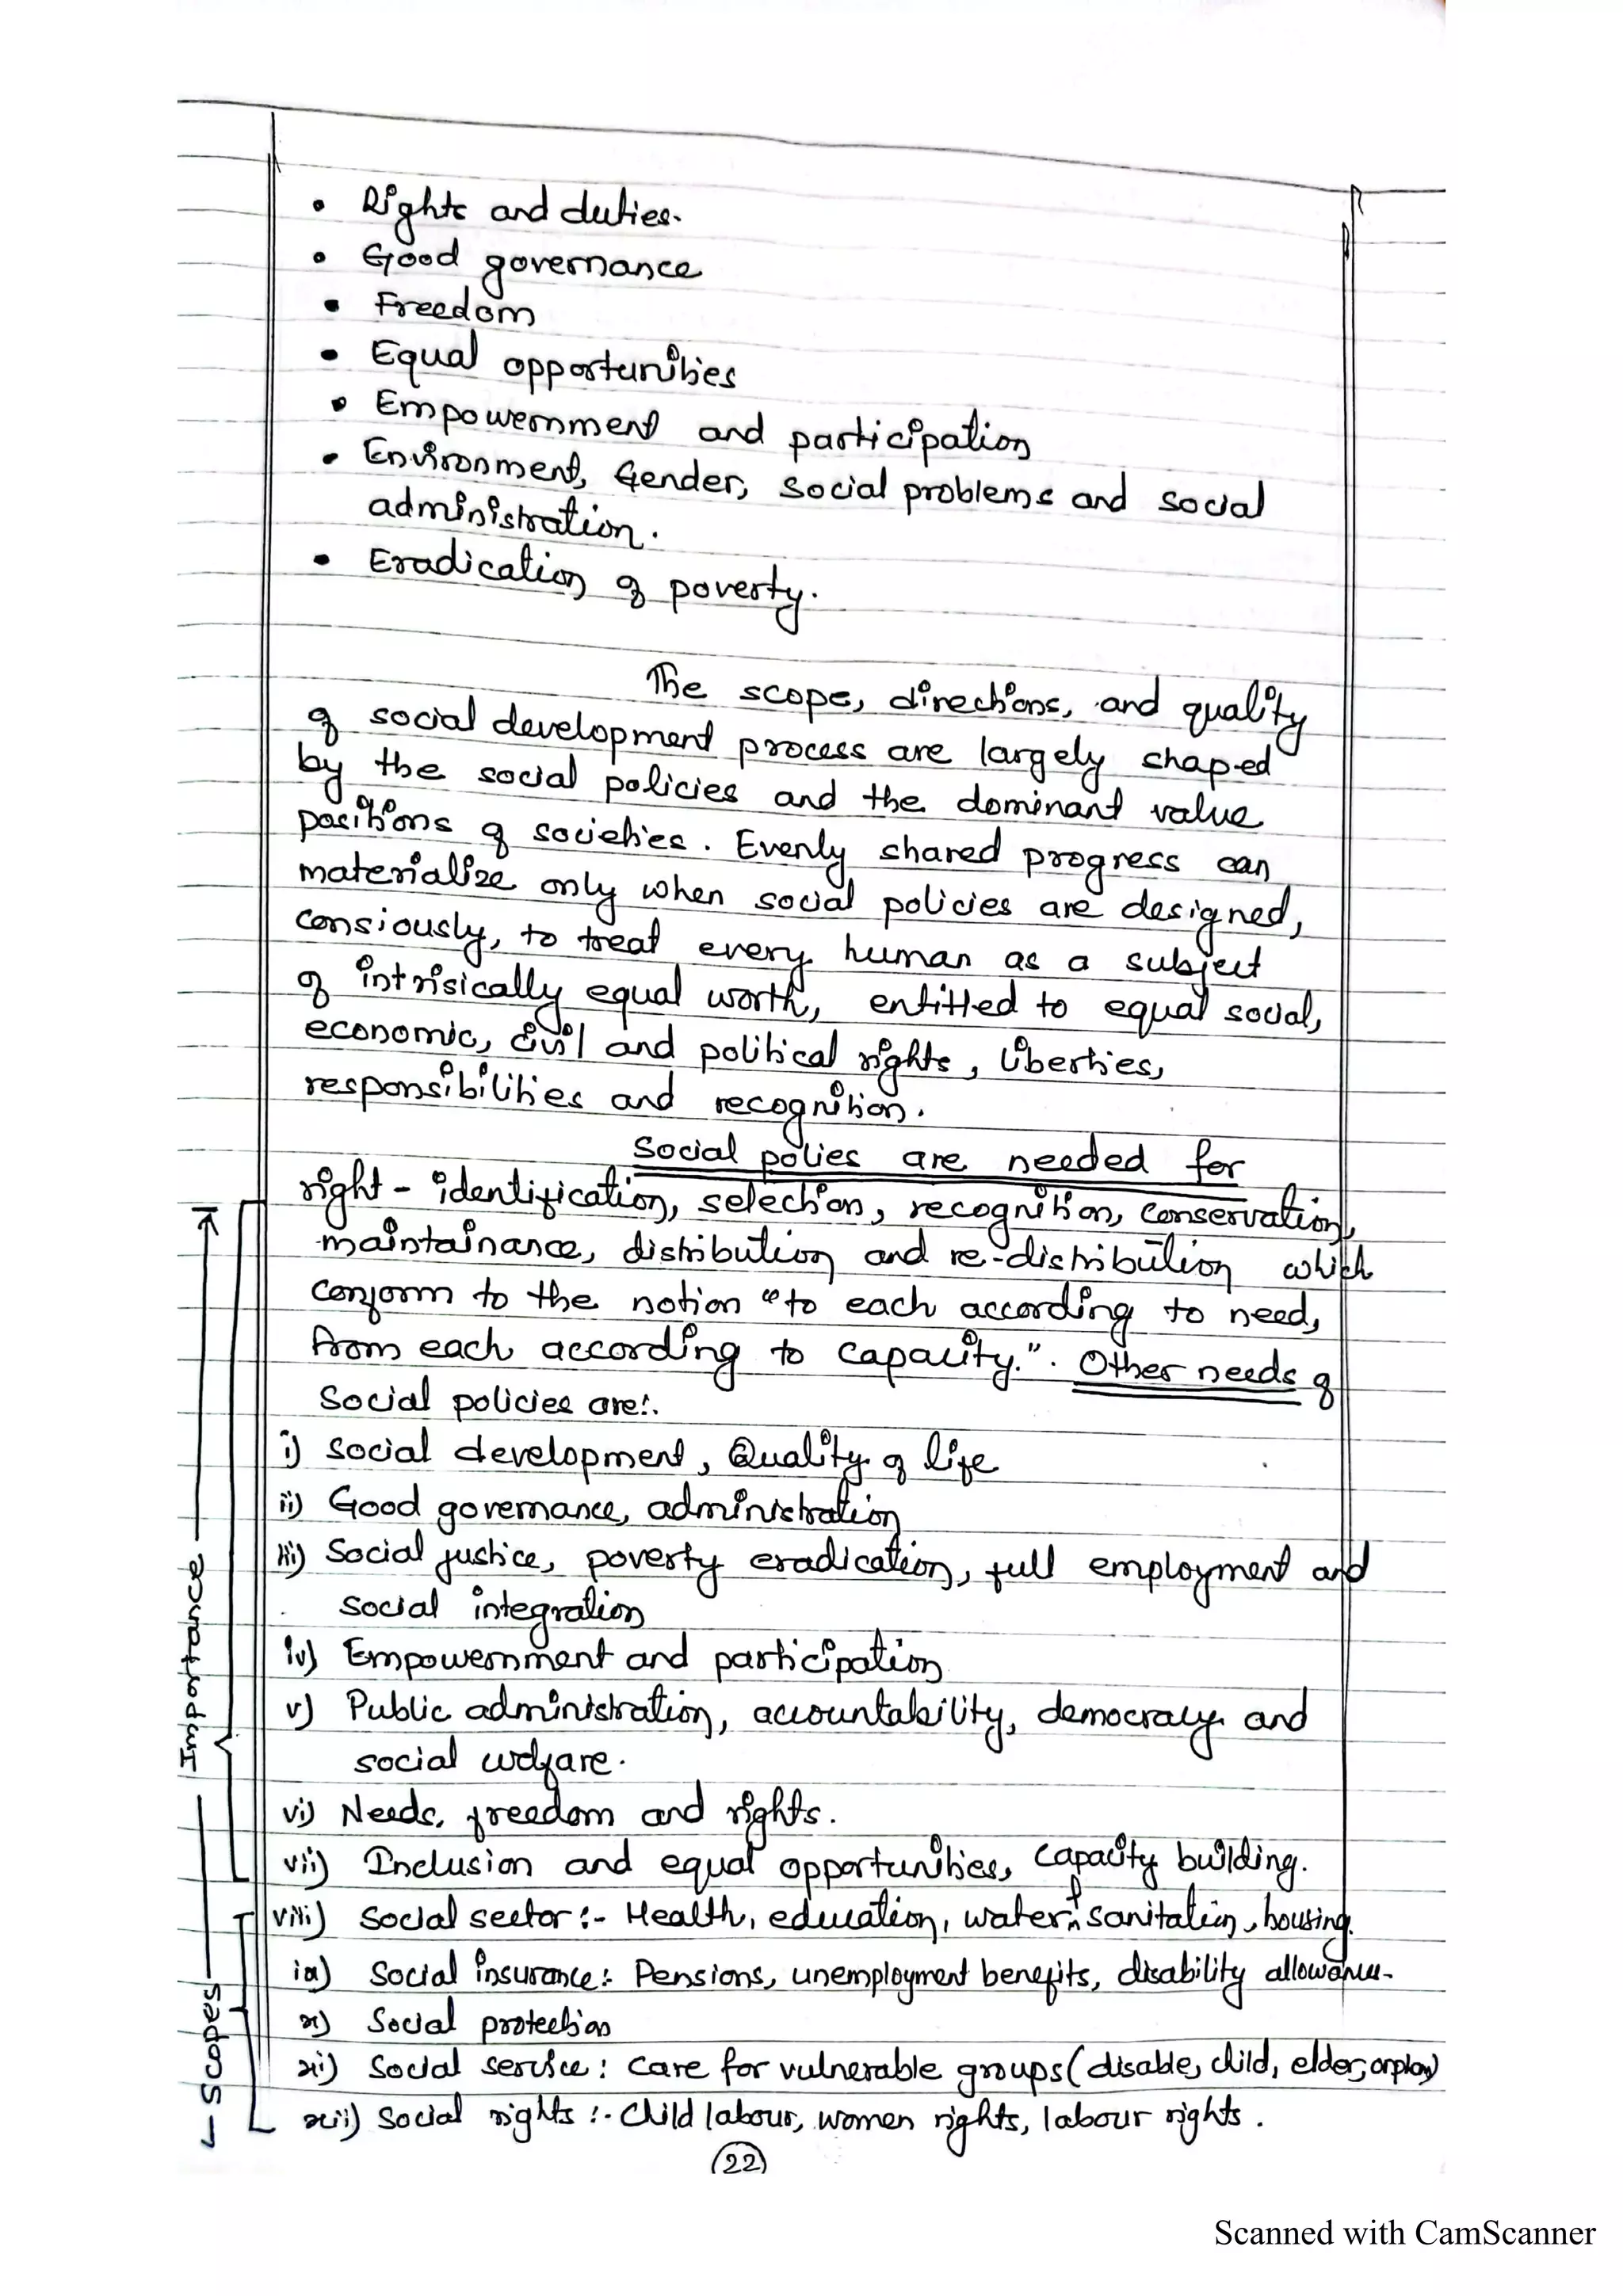 • Rights and duties.
• Good governance
• Freedom
• Equal opportunities
• Empowernment and participation
• Environment, Gender, Social problems and social
administration.
• Eradication of poverty.
The scope, directions, and quality
of social development process are largely shaped
by the social policies and the dominant value
positions of societies. Evenly shared progress can
materialize only when social policies are designed,
consiously, to treat every human as a subject
of intrisically equal worth, entitled to equal social,
economic, civil and political rights, liberties,
responsibilities and recognition.
Social polies are needed for
right - identification, selection, recognition, conservation,
maintainance, distribution and re-distribution which
conform to the notion "to each according to need,
from each according to capacity.". Other needs of
Social policies are:.
i) Social development, Quality of life
ii) Good governance, administration
iii) Social justice, poverty eradication, full employment and
social integration
iv) Empowernment and participation
v) Public administration, accountability, democracy and
social welfare.
vi) Needs, freedom and rights.
vii) Inclusion and equal opportunities, capacity building.
viii) Social sector :- Health, education, water & sanitation, housing.
ix) Social insurance: Pensions, unemployment benefits, disability allowance.
x) Social protection
xi) Social service: care for vulnerable groups (disable, child, elder,
xii) Social rights :- Child labour, women rights, labour rights.
Importance
Scopes
22
Scanned with CamScanner